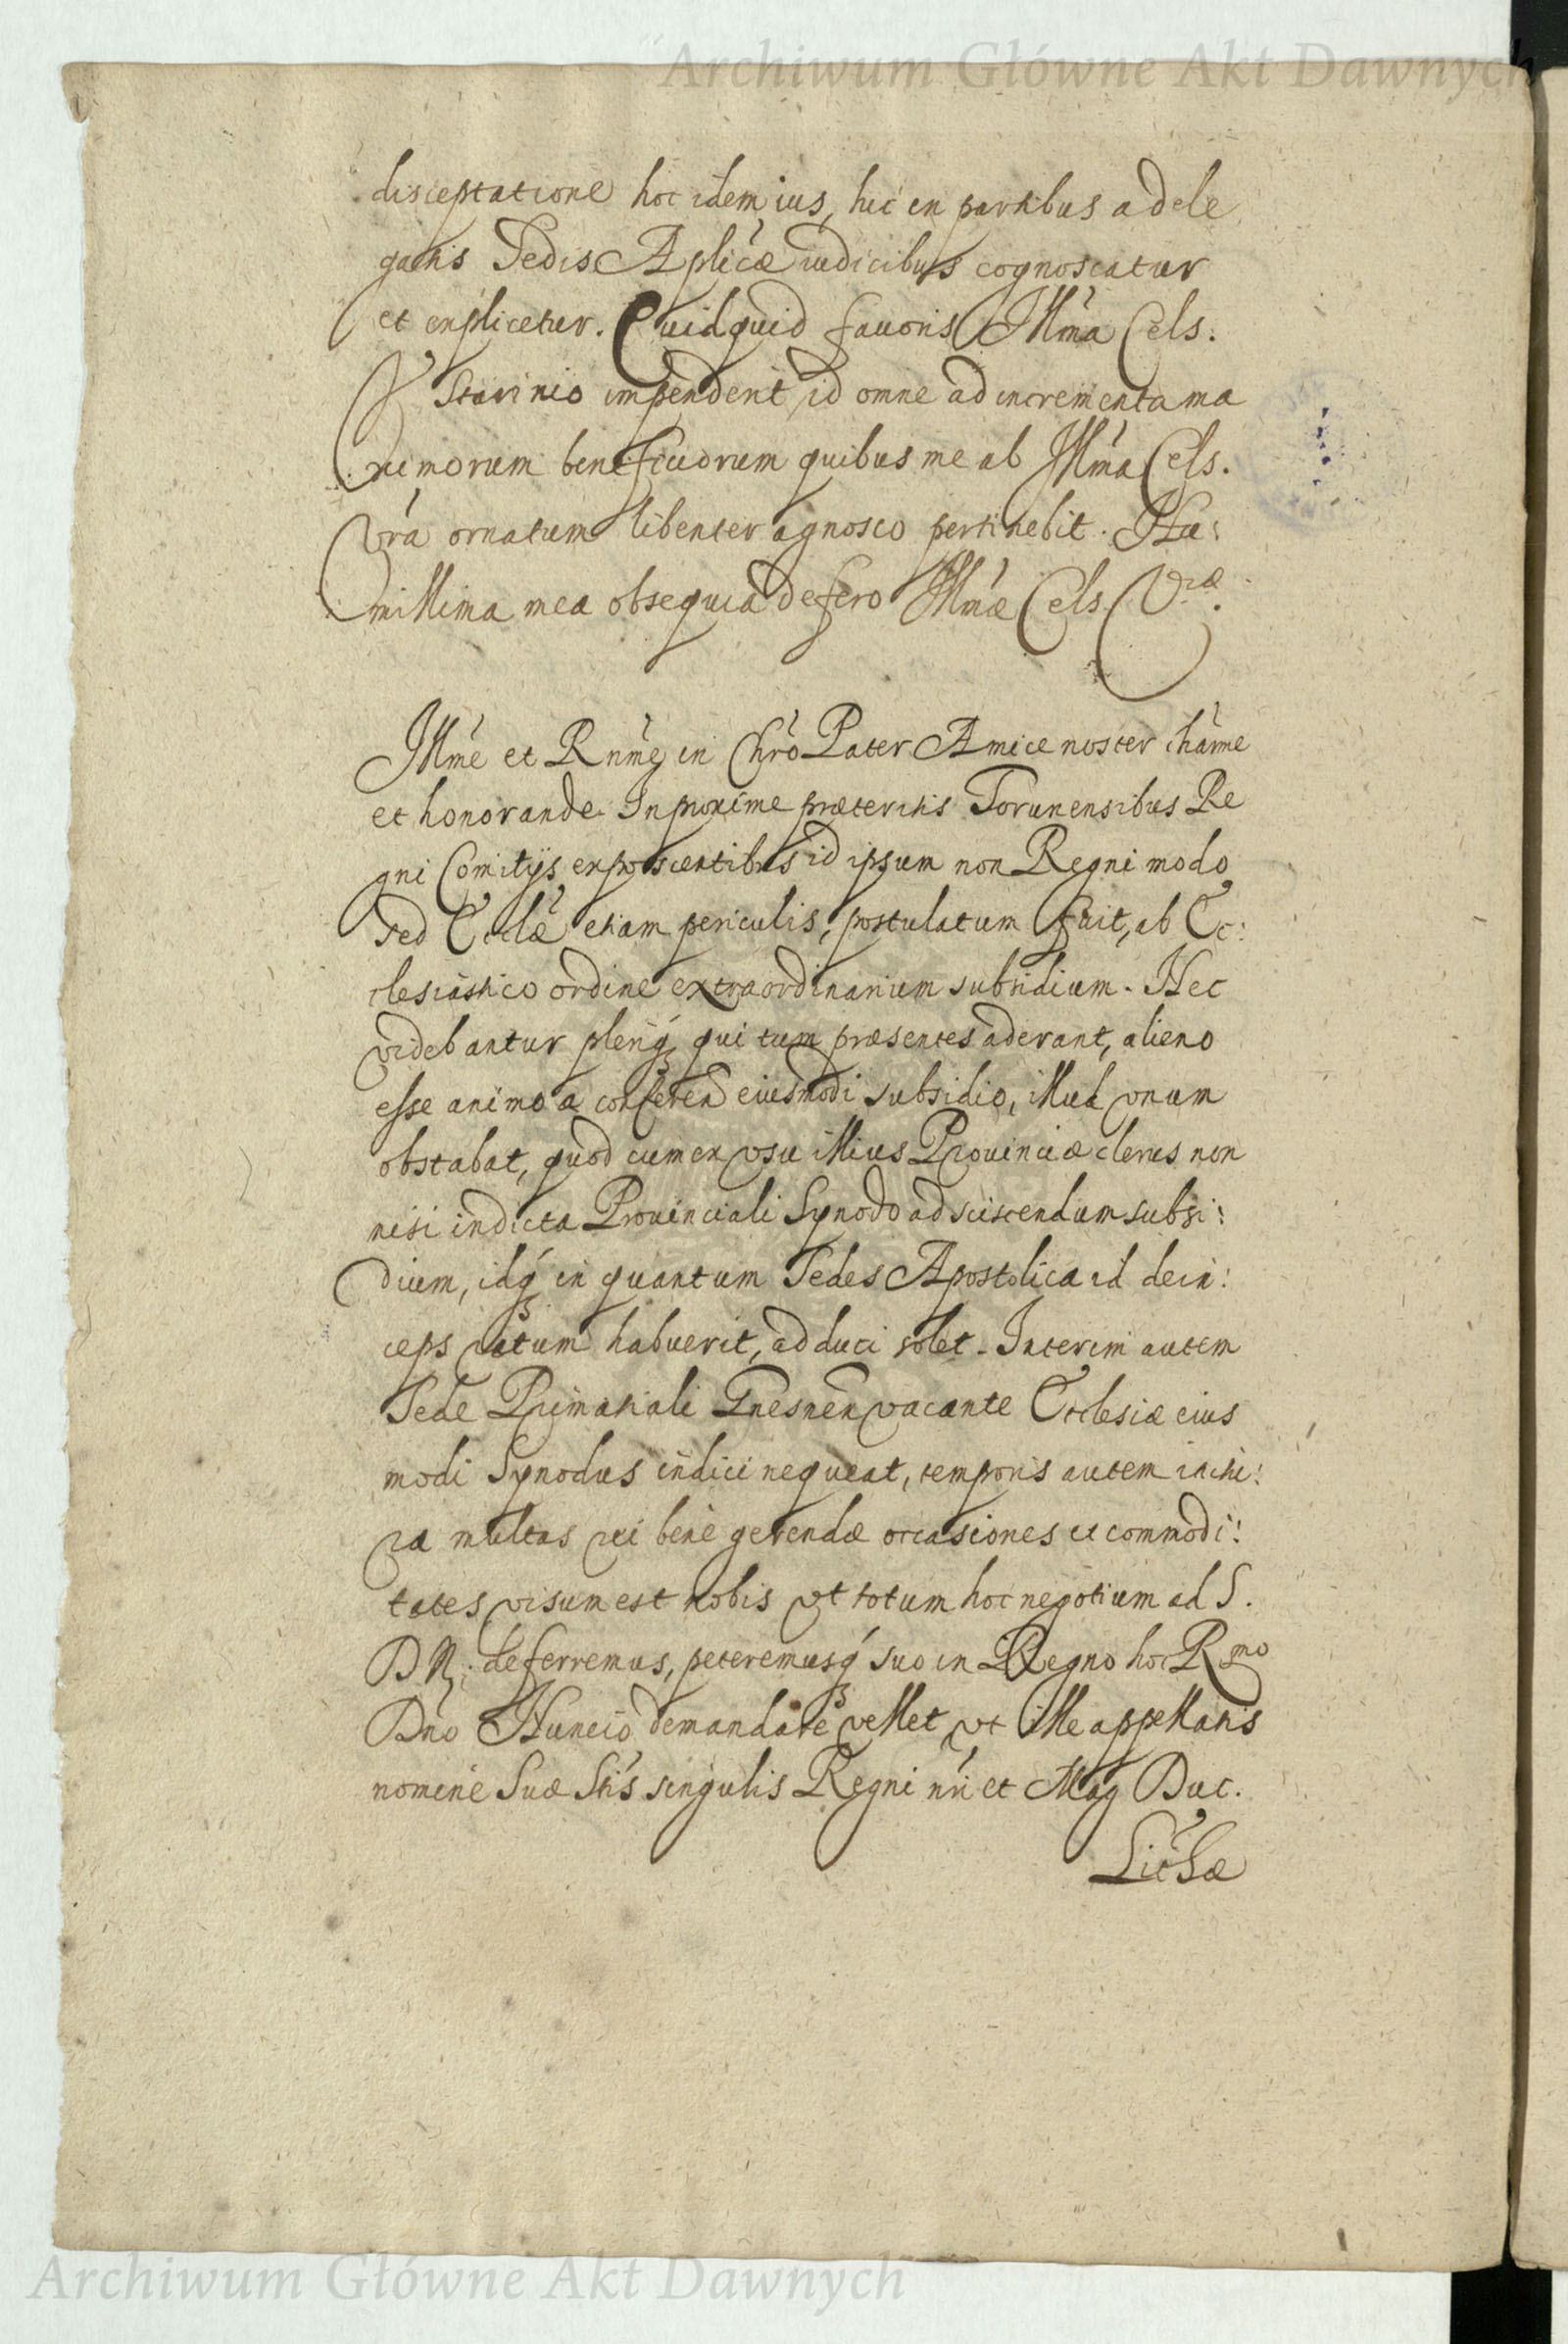 Archiwum Główne Akt Dawnych
disceptatione hoc idem ius, hic in partibus a dele
gatis Sedis Aplicæ iudicibus cognoscatur
et explicetur. Quidquid fauoris Illma Cels.
V Starinio impenderit id omne ad incrementa ma
ximorum beneficiorum quibus me ab Illma Cels.
Vra ornatum libenter agnosco pertinebit. Hu:
millima mea obsequia defero Illmæ Cels. Vræ.
Illme et Rnme in Chro Pater Amice noster charme
et honorande. In proxime præteritis Torunensibus Re
gni Comitijs exposcentibus id ipsum non Regni modo
sed Ecclæ etiam periculis, postulatum fuit, ab Ec:
clesiastico ordine extraordinarium subsidium. Nec
videbantur pleriq; qui tum præsentes aderant, alieno
esse animo a conferen eiusmodi subsidio, illud vnum
obstabat, quod cum ex vsu illius Prouinciæ clerus non
nisi indicta Prouinciali Synodo ad sciscendum subsi:
dium, idq; in quantum Sedes Apostolica id dein:
ceps ratum habuerit, adduci solet. Interim autem
Sede Primatiali Gnesnen vacante Ecclesiæ eius
modi Synodus indici nequeat, temporis autem iactu:
ra multas rei bene gerendæ occasiones et commodi:
tates visum est nobis vt totum hoc negotium ad S.
D N. deferremus, peteremusq; suo in Regno hoc Rmo
Dno Nuncio demandare vellet vt ille appellatis
nomine Suæ Stis singulis Regni nri et Mag Duc.
Lithæ
Archiwum Główne Akt Dawnych